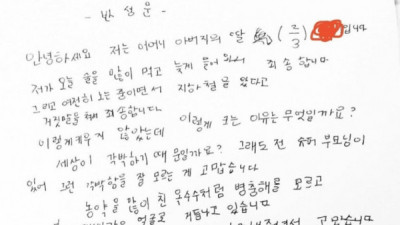 - 반성문 -
안녕하세요 저는 어머니 아버지의 딸 (2/3) 입니다
저가 오늘 술을 많이 먹고 늦게 들어 와서 죄송합니다
그리고 여전히 노는 중이면서 지하철을 탔다고
거짓말을 해서 죄송합니다. 이렇게 크는 이유는 무엇일까요?
이렇게 키우지 않았는데
세상이 각박하기 때문일까요? 그래도 전 슈퍼 부모님이
있어 그런 각박함을 잘 모르는 게 고맙습니다
농약을 많이 친 옥수수처럼 병충해를 모르고
얼굴로 거듭나고 있습니다
고맙습니다